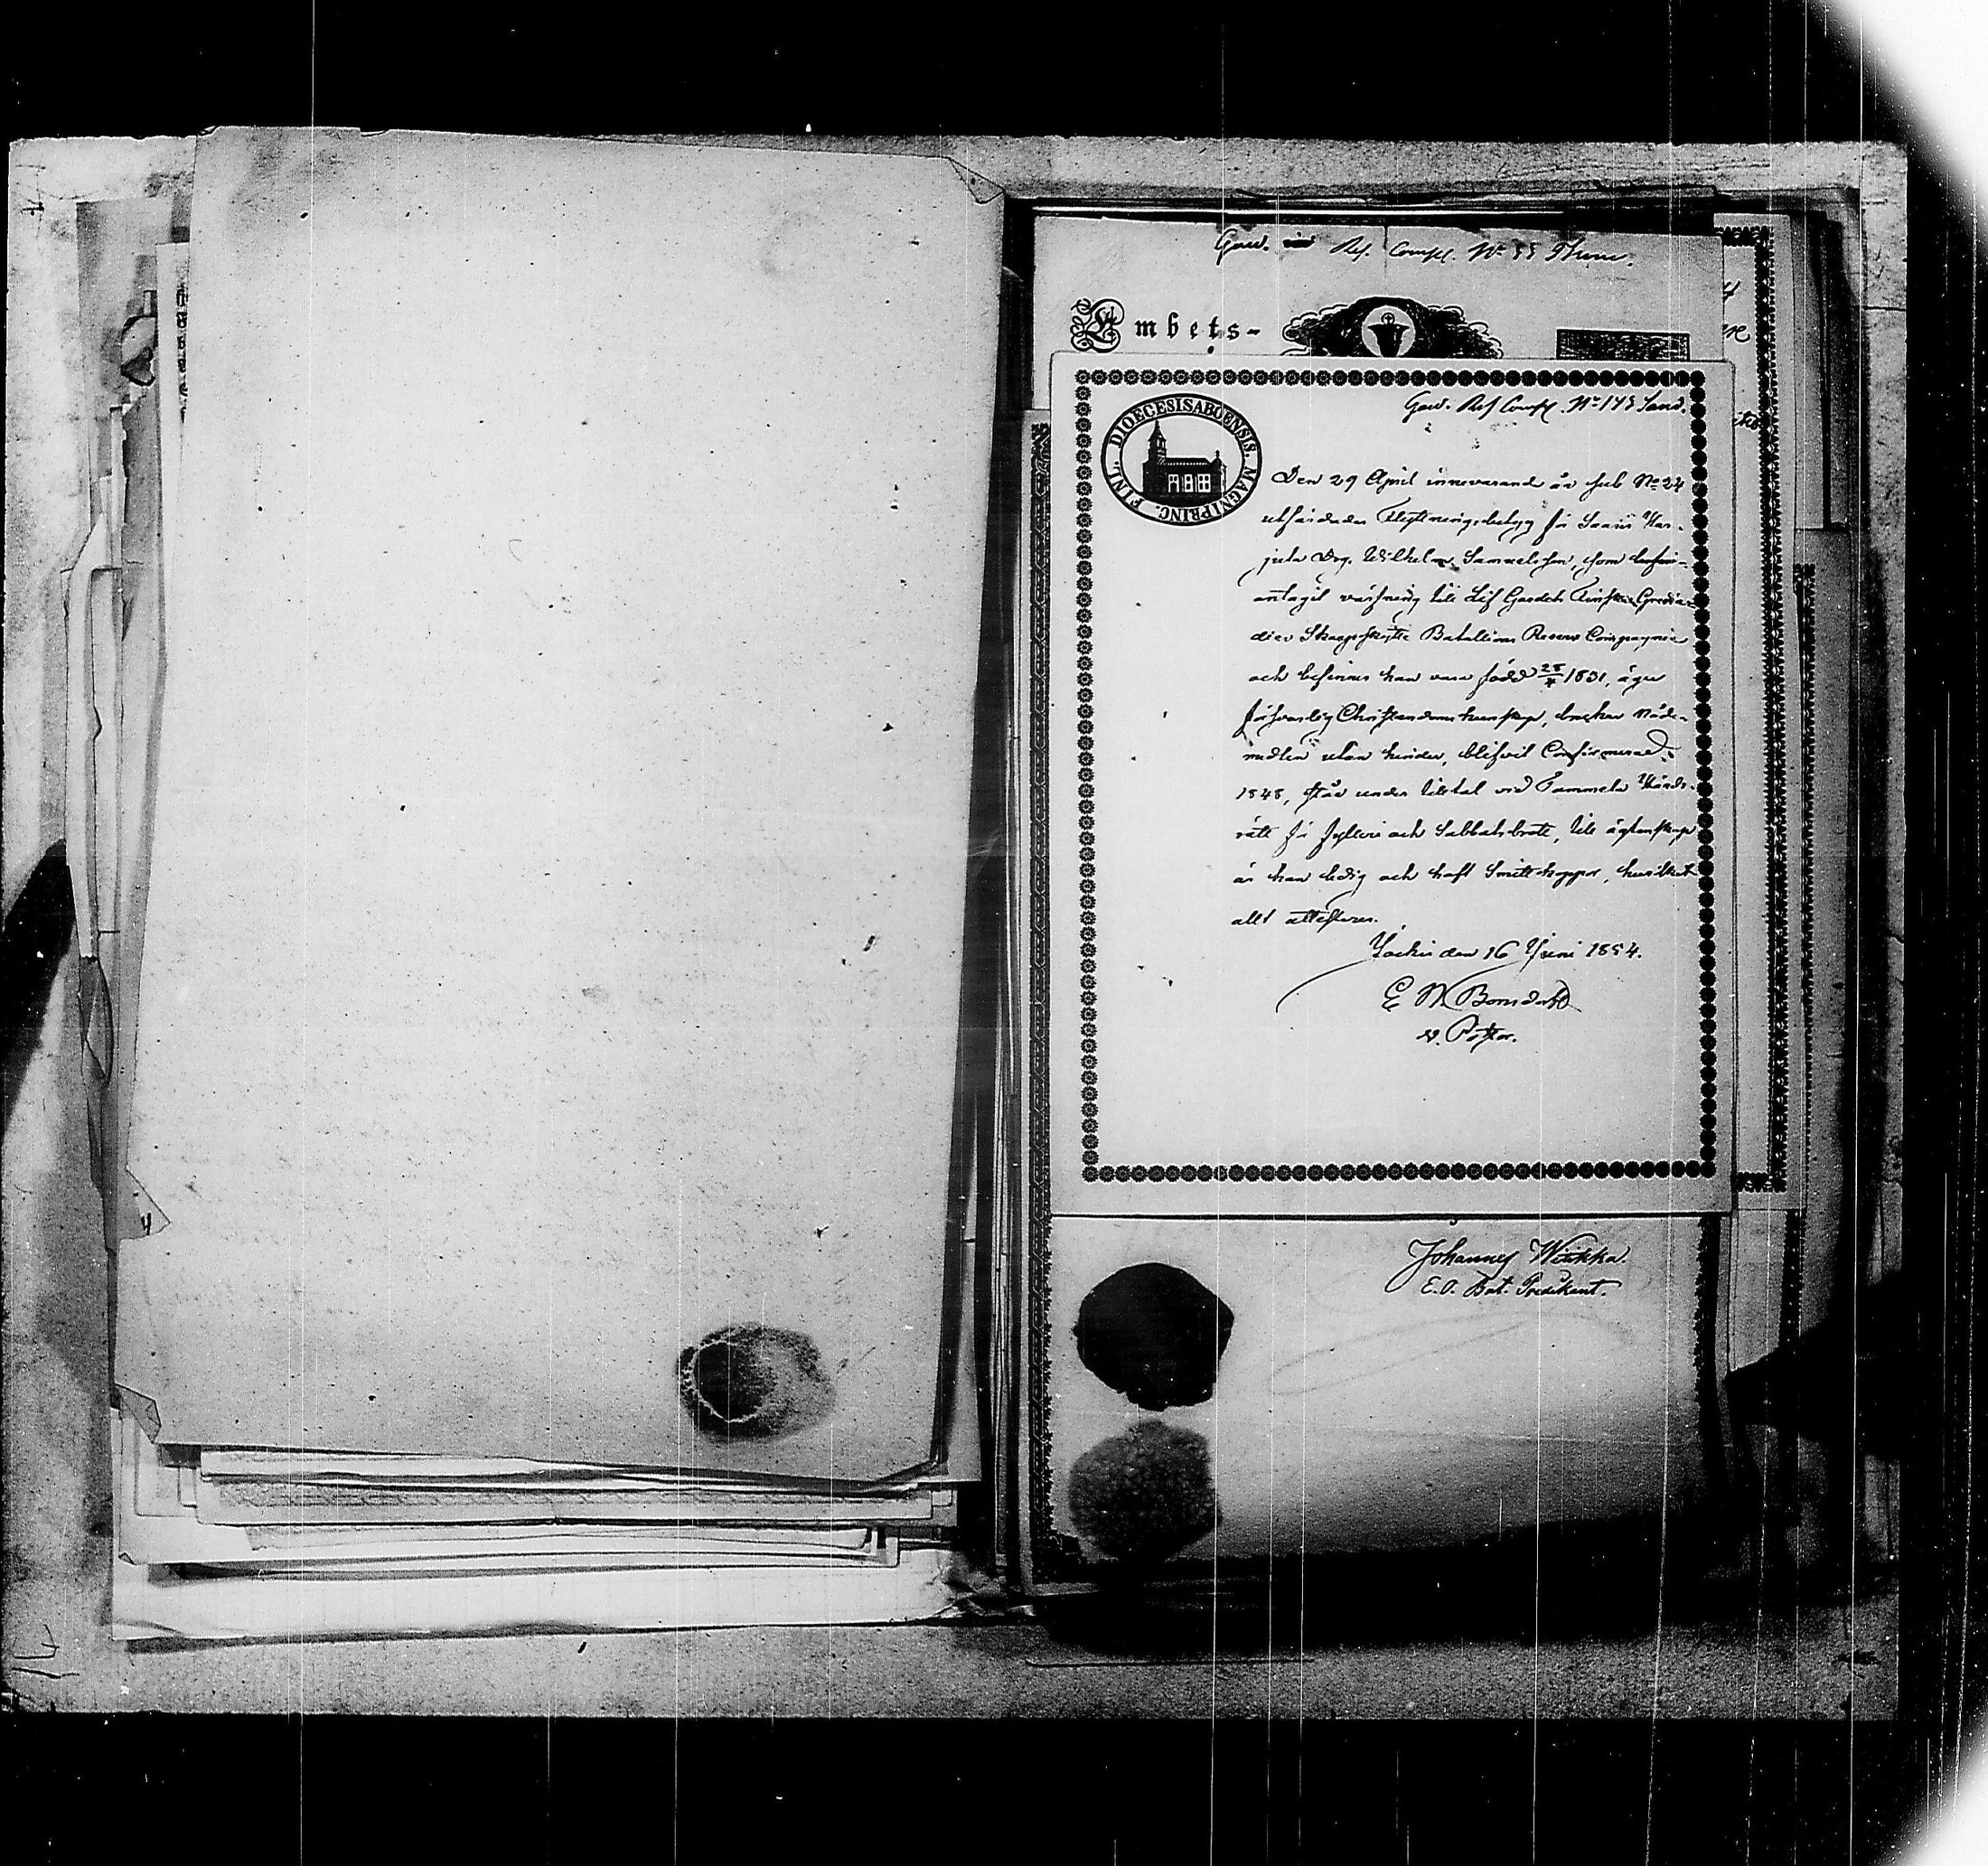 Gard. Res. Comp. No 55 Thure.
Embets-
DIOECESIS ABOENSIS. MAGNI PRINC. FINL.
Gard. Res Comp. No 145 Sand.
Den 29 April innevarande år sub No 24
utfärdades Flyttningsbetyg för
Drg. Wilhelm Samuelsson, som
antagit värfning till Lif Gardets Finska Grena-
dier Skarpskytte Bataillons Reserv Compagnie
och befinnes han vara född 28/4 1831, äger
försvarlig Christendomskunskap, brukar Nåde-
medlen utan hinder, blifvit Confirmerad
1848, står under tilltal vid Tammela Härads-
rätt för fylleri och Sabbatsbrott, till äktenskap
är han ledig och haft Smittkoppor, hvilket
allt attesteras.
Jockis den 16 Juni 1854.
E W Bonsdorff
v. Pastor.
Johannes Wirkka.
E.O. Bat. Predikant.